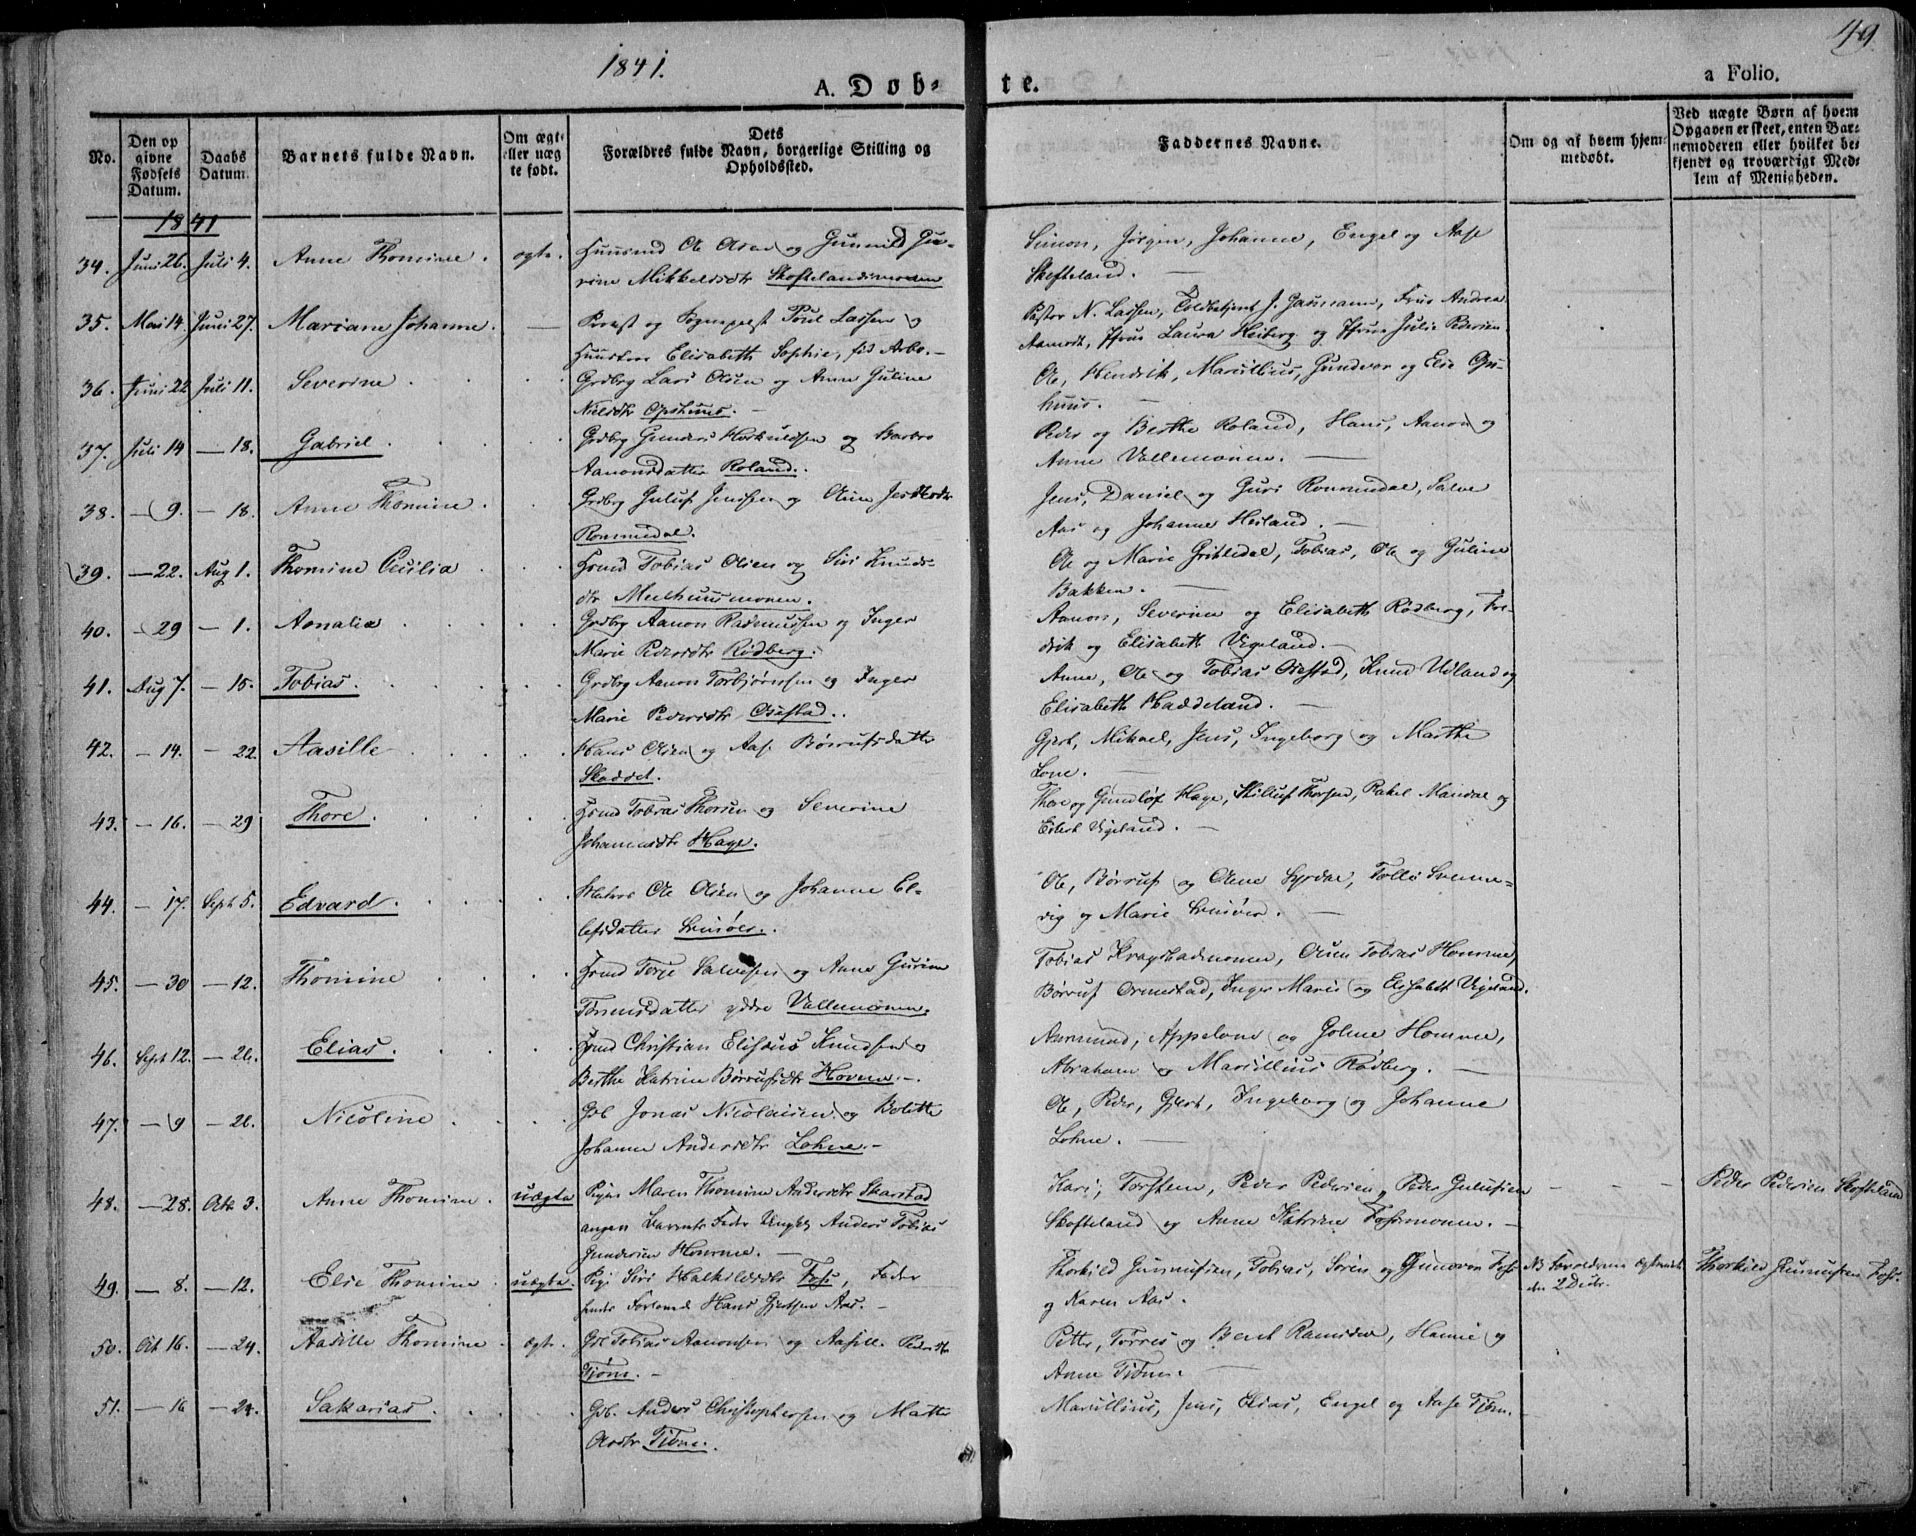 1841.
49
A. Døb-
te.
a Folio.
No.
Den op
givne
Fødsels
Datum.
Daabs
Datum.
Barnets fulde Navn.
Om ægte
eller uæg
te født.
Dets
Forældres fulde Navn, borgerlige Stilling og
Opholdssted.
Faddernes Navne.
Om og af hvem hjem-
medøbt.
Ved uægte Børn af hvem
Opgaven er skeet, enten Bar-
nemoderen eller hvilket be-
kjendt og troværdigt Med-
lem af Menigheden.
1841
34. Juni 26. Juli 4. Anne Thomine. ægte. Huusmd Ole Olsen og Gunnild Gu-
rine Mikkelsdtr Skoftelandsmoen
Simon, Jørgen, Johanne, Engel og Aase
Skofteland.
35. Mai 14. Juni 27. Mariane Johanne. — Provst og Sognepræst Poul Lassen og
Huustro Elisabeth Sophie, fød Arbo.
Pastor N. Lassen, Toldbetjent J. Gasmann, Frue Andrea
Aamodt, Jfrue Laura Heiberg og Jfrue Julie Pedersen
36. Juni 22 Juli 11. Severine. Grdbrg Lars Olsen og Anne Guline
Nielsdtr Opshuus.
Ole, Hendrik, Marcellius, Gundvor og Elie Op-
huus.
37. Juli 14 — 18. Gabriel. Grdbrg Gunder Hoskuldsen og Barbro
Aanonsdatter Roland.
Peder og Berthe Roland, Hans, Aanon og
Anne Vallemonen.
38. — 9. — 18. Anne Thomine. Grdbrg Guluf Jensen og Oline
Rommedal.
Jens, Daniel og Guri Rommedal, Salve
Aas og Johanne Heiland.
39. — 22. Aug 1. Thomine Cecilia. Hsmd Tobias Olsen og Siri Knuds-
dtr Meelhuusmonen.
Ole og Marie Gritledal, Tobias, Ole og Guline
Bakken.
40. — 29 — 1. Amalia. Grdbrg Aanon Rasmussen og Inger
Marie Pedersdtr Rødberg.
Aanon, Severine og Elisabeth Rødberg, Fre-
drik og Elisabeth Vigeland.
41. Aug 7. — 15. Tobias. Grdbrg Aanon Torbjørnsen og Inger
Marie Pedersdtr Osestad.
Anne, Ole og Tobias Osestad, Knud Udland og
Elisabeth Haddeland.
42. — 14. — 22. Aasille. Hans Olsen og Aase Børrufsdatter
Skaddet.
Gjert, Mikael, Jens, Ingeborg og Marthe
Lone.
43. — 16. — 29 Thore. Hsmd Tobias Thorsen og Severine
Johannesdtr Hage.
Thore og Gundløf Hage, Stilluf Thorsen, Rakel Mandal og
Eilert Vigeland.
44. — 17. Sept 5. Edvard. Matros Ole Olsen og Johanne El-
lefsdatter Svinøer.
Ole, Børruf og Olene Syrdal, Tollef Svenne-
vig og Marie Svinøer.
45. — 30 — 12. Thomine Hsmd Terje Salvesen og Anne Gurine
Tønnesdatter ydre Vallemonen.
Tobias Kragstadmonen, Oline Tobias Homme,
Børruf Ormestad, Inger Marie og Elisabet Vigeland.
46. Sept 12. — 26. Elias. Hsmd Christian Elisæus Knudsen og
Berthe Katrine Børrufsdtr Hoven.
Aanmund, Appelone og Goline Homme,
Abraham og Marcellius Rødberg.
47. — 9 — 26. Nicoline. Gbr Jonas Nicolaisen og Bolette
Johanne Andersdtr Lohne.
Ole, Peder, Gjert, Ingeborg og Johanne
Lohne.
48. — 28. Oct 3. Anne Thomine. uægte Pigen Maren Thomine Andersdtr Skarstad
angiven Barnets Fader Ungkl Anders Tobias
Gundersen Homme.
Kari, Torsten, Peder Pedersen, Peder Gulufsen
Skofteland og Anne Katrine Fossmonen.
Peder Pedersen Skofteland
49. — 8. — 12. Elie Thomine. uægte Pige Siri Halkildsdtr Foss, Fader
hendes Forlovede Hans Gjertsen Aas.
Thorkild Gunnufsen, Tobias, Søren og Gunvor Foss
og Karen Aas.
NB Forældrene ægteviet
den 2 Decbr.
Thorkild Gunnufsen Foss.
50. Oct 16. — 24. Aasille Thomine. ægte. Gbr Tobias Aanonsen og Aasille Pedersdtr
Tjøm.
Petter, Tørres og Bernt Ramsdal, Hanne og
Anne Tjøm.
51. — 16 — 24. Sakarias. Gbr. Anders Christophersen og Mallie
Olsdtr Tjøm.
Marcellius, Jens, Elias, Engel og Aase Tjøm.